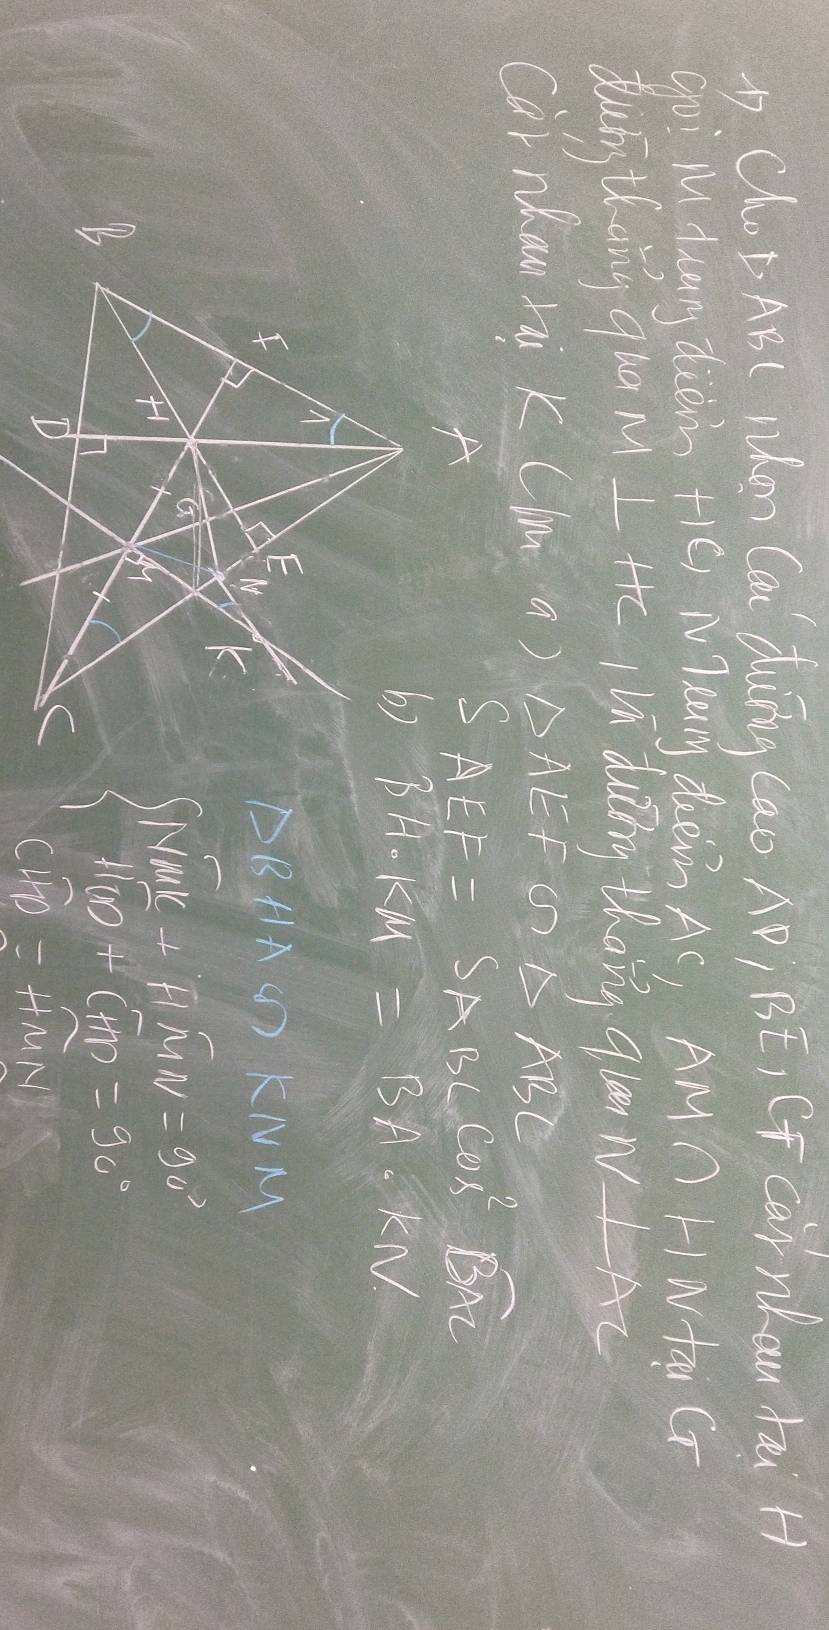 1) Cho △ABC nhọn Các đường cao AD, BE, CF cắt nhau tại H
gọi M trung điểm HC, N Trung điểm AC, AM ∩ HN tại G
đường thẳng qua M ⊥ HC, và đường thẳng qua N ⊥ AC
Cắt nhau tại K C/m a) △AEF ∽ △ABC
S AEF = S ABC Cos² BAC
b) BH.KM = BA.KN
△BHA ∽ KNM
NMK + HMN = 90°
HCD + CHD = 90°
CHD = HMN
A
1
F
E
B
H
G
N
K
D
M
C